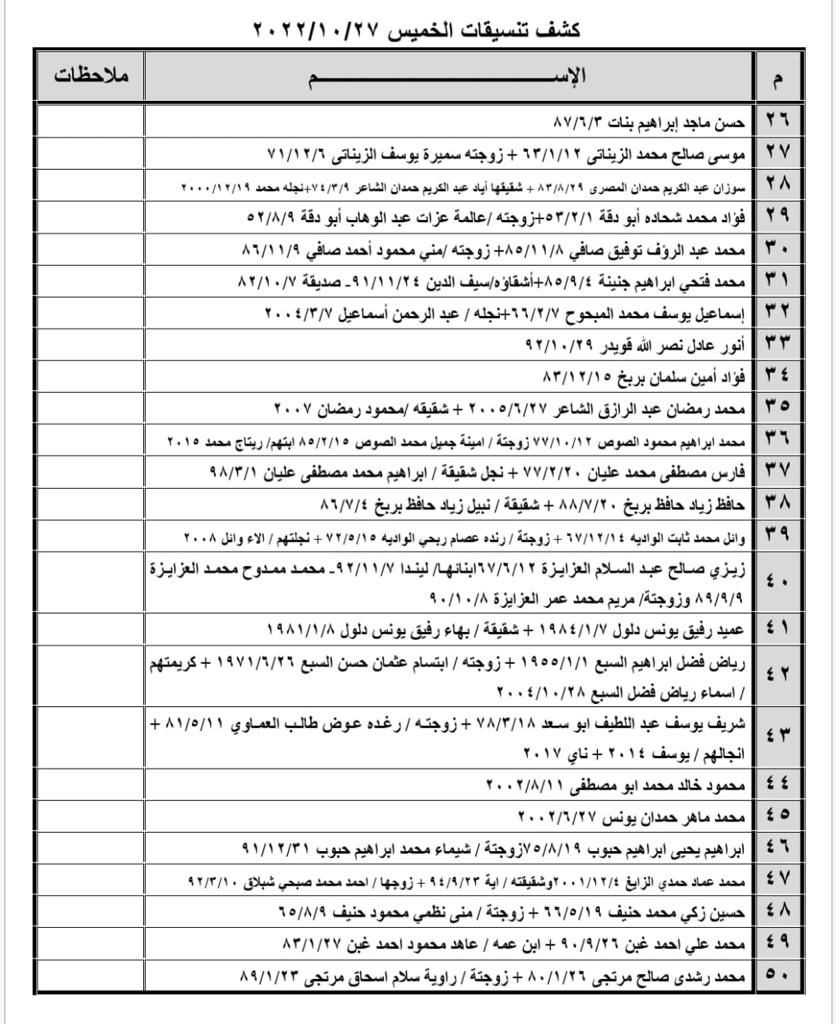 كشف تنسيقات الخميس ٢٠٢٢/١٠/٢٧
م الإســـــم ملاحظات
٢٦ حسن ماجد إبراهيم بنات ٨٧/٦/٣
٢٧ موسى صالح محمد الزيناتى ٦٣/١/١٢ + زوجته سميرة يوسف الزيناتى ٧١/١٢/٦
٢٨ سوزان عبد الكريم حمدان المصرى ٨٣/٨/٢٩ + شقيقها أياد عبد الكريم حمدان الشاعر ٧٤/٣/٩+نجله محمد ٢٠٠٠/١٢/١٩
٢٩ فؤاد محمد شحاده أبو دقة ٥٣/٢/١+زوجته /عالمة عزات عبد الوهاب أبو دقة ٥٢/٨/٩
٣٠ محمد عبد الرؤف توفيق صافي ٨٥/١١/٨+ زوجته /مني محمود أحمد صافي ٨٦/١١/٩
٣١ محمد فتحي ابراهيم جنينة ٨٥/٩/٤+أشقاؤه/سيف الدين ٩١/١١/٢٤- صديقة ٨٢/١٠/٧
٣٢ إسماعيل يوسف محمد المبحوح ٦٦/٢/٧+نجله / عبد الرحمن أسماعيل ٢٠٠٤/٣/٧
٣٣ أنور عادل نصر الله قويدر ٩٢/١٠/٢٩
٣٤ فؤاد أمين سلمان بربخ ٨٣/١٢/١٥
٣٥ محمد رمضان عبد الرازق الشاعر ٢٠٠٥/٦/٢٧ + شقيقه /محمود رمضان ٢٠٠٧
٣٦ محمد ابراهيم محمود الصوص ٧٧/١٠/١٢ زوجتة / امينة جميل محمد الصوص ٨٥/٢/١٥ ابتهم/ ريتاج محمد ٢٠١٥
٣٧ فارس مصطفى محمد عليان ٧٧/٢/٢٠ + نجل شقيقة / ابراهيم محمد مصطفى عليان ٩٨/٣/١
٣٨ حافظ زياد حافظ بربخ ٨٨/٧/٢٠ + شقيقة / نبيل زياد حافظ بربخ ٨٦/٧/٤
٣٩ وائل محمد ثابت الواديه ٦٧/١٢/١٤ + زوجتة / رنده عصام ربحي الواديه ٧٢/٥/١٥ + نجلتهم / الاء وائل ٢٠٠٨
٤٠ زيزي صالح عبد السلام العزايزة ٦٧/٦/١٢ابنائها/ ليندا ٩٢/١١/٧- محمد ممدوح محمد العزايزة
٨٩/٩/٩ وزوجتة/ مريم محمد عمر العزايزة ٩٠/١٠/٨
٤١ عميد رفيق يونس دلول ١٩٨٤/١/٧ + شقيقة / بهاء رفيق يونس دلول ١٩٨١/١/٨
٤٢ رياض فضل ابراهيم السبع ١٩٥٥/١/١ + زوجته / ابتسام عثمان حسن السبع ١٩٧١/٦/٢٦ + كريمتهم
/ اسماء رياض فضل السبع ٢٠٠٤/١٠/٢٨
٤٣ شريف يوسف عبد اللطيف ابو سعد ٧٨/٣/١٨ + زوجته / رغده عوض طالب العماوي ٨١/٥/١١ +
انجالهم / يوسف ٢٠١٤ + ناي ٢٠١٧
٤٤ محمود خالد محمد ابو مصطفى ٢٠٠٢/٨/١١
٤٥ محمد ماهر حمدان يونس ٢٠٠٢/٦/٢٧
٤٦ ابراهيم يحيى ابراهيم حبوب ٧٥/٨/١٩زوجتة / شيماء محمد ابراهيم حبوب ٩١/١٢/٣١
٤٧ محمد عماد حمدي الزايغ ٢٠٠١/١٢/٤وشقيقته / اية ٩٤/٩/٢٣ + زوجها / احمد محمد صبحي شبلاق ٩٢/٣/١٠
٤٨ حسين زكي محمد حنيف ٦٦/٥/١٩ + زوجتة / منى نظمي محمود حنيف ٦٥/٨/٩
٤٩ محمد علي احمد غبن ٩٠/٩/٢٦ + ابن عمه / عاهد محمود احمد غبن ٨٣/١/٢٧
٥٠ محمد رشدى صالح مرتجى ٨٠/١/٢٦ + زوجتة / راوية سلام اسحاق مرتجى ٨٩/١/٢٣